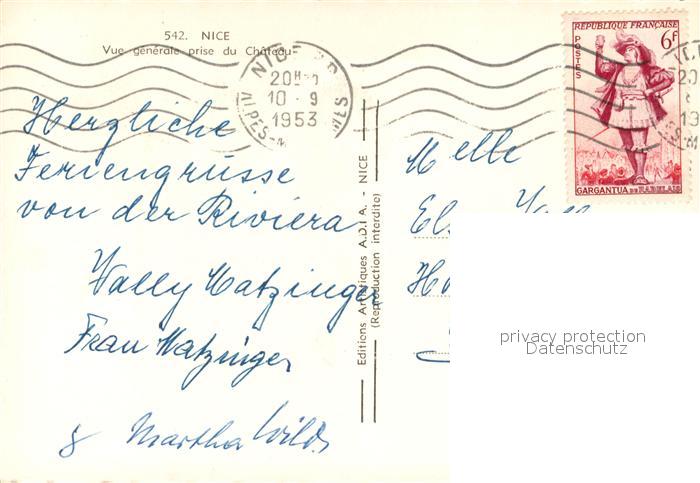 542. NICE
Vue générale prise du Château
NICE
20H
10 - 9
1953
ALPES-M MES
REPUBLIQUE FRANÇAISE
6f
POSTES
GARGANTUA DE RABELAIS
19
Herzliche
Feriengrüsse
von der Riviera
Wally Matzinger
Frau Matzinger
& Martha Wilds
Editions Artistiques A.D.I.A. - NICE
(Reproduction interdite)
Melle
privacy protection
Datenschutz